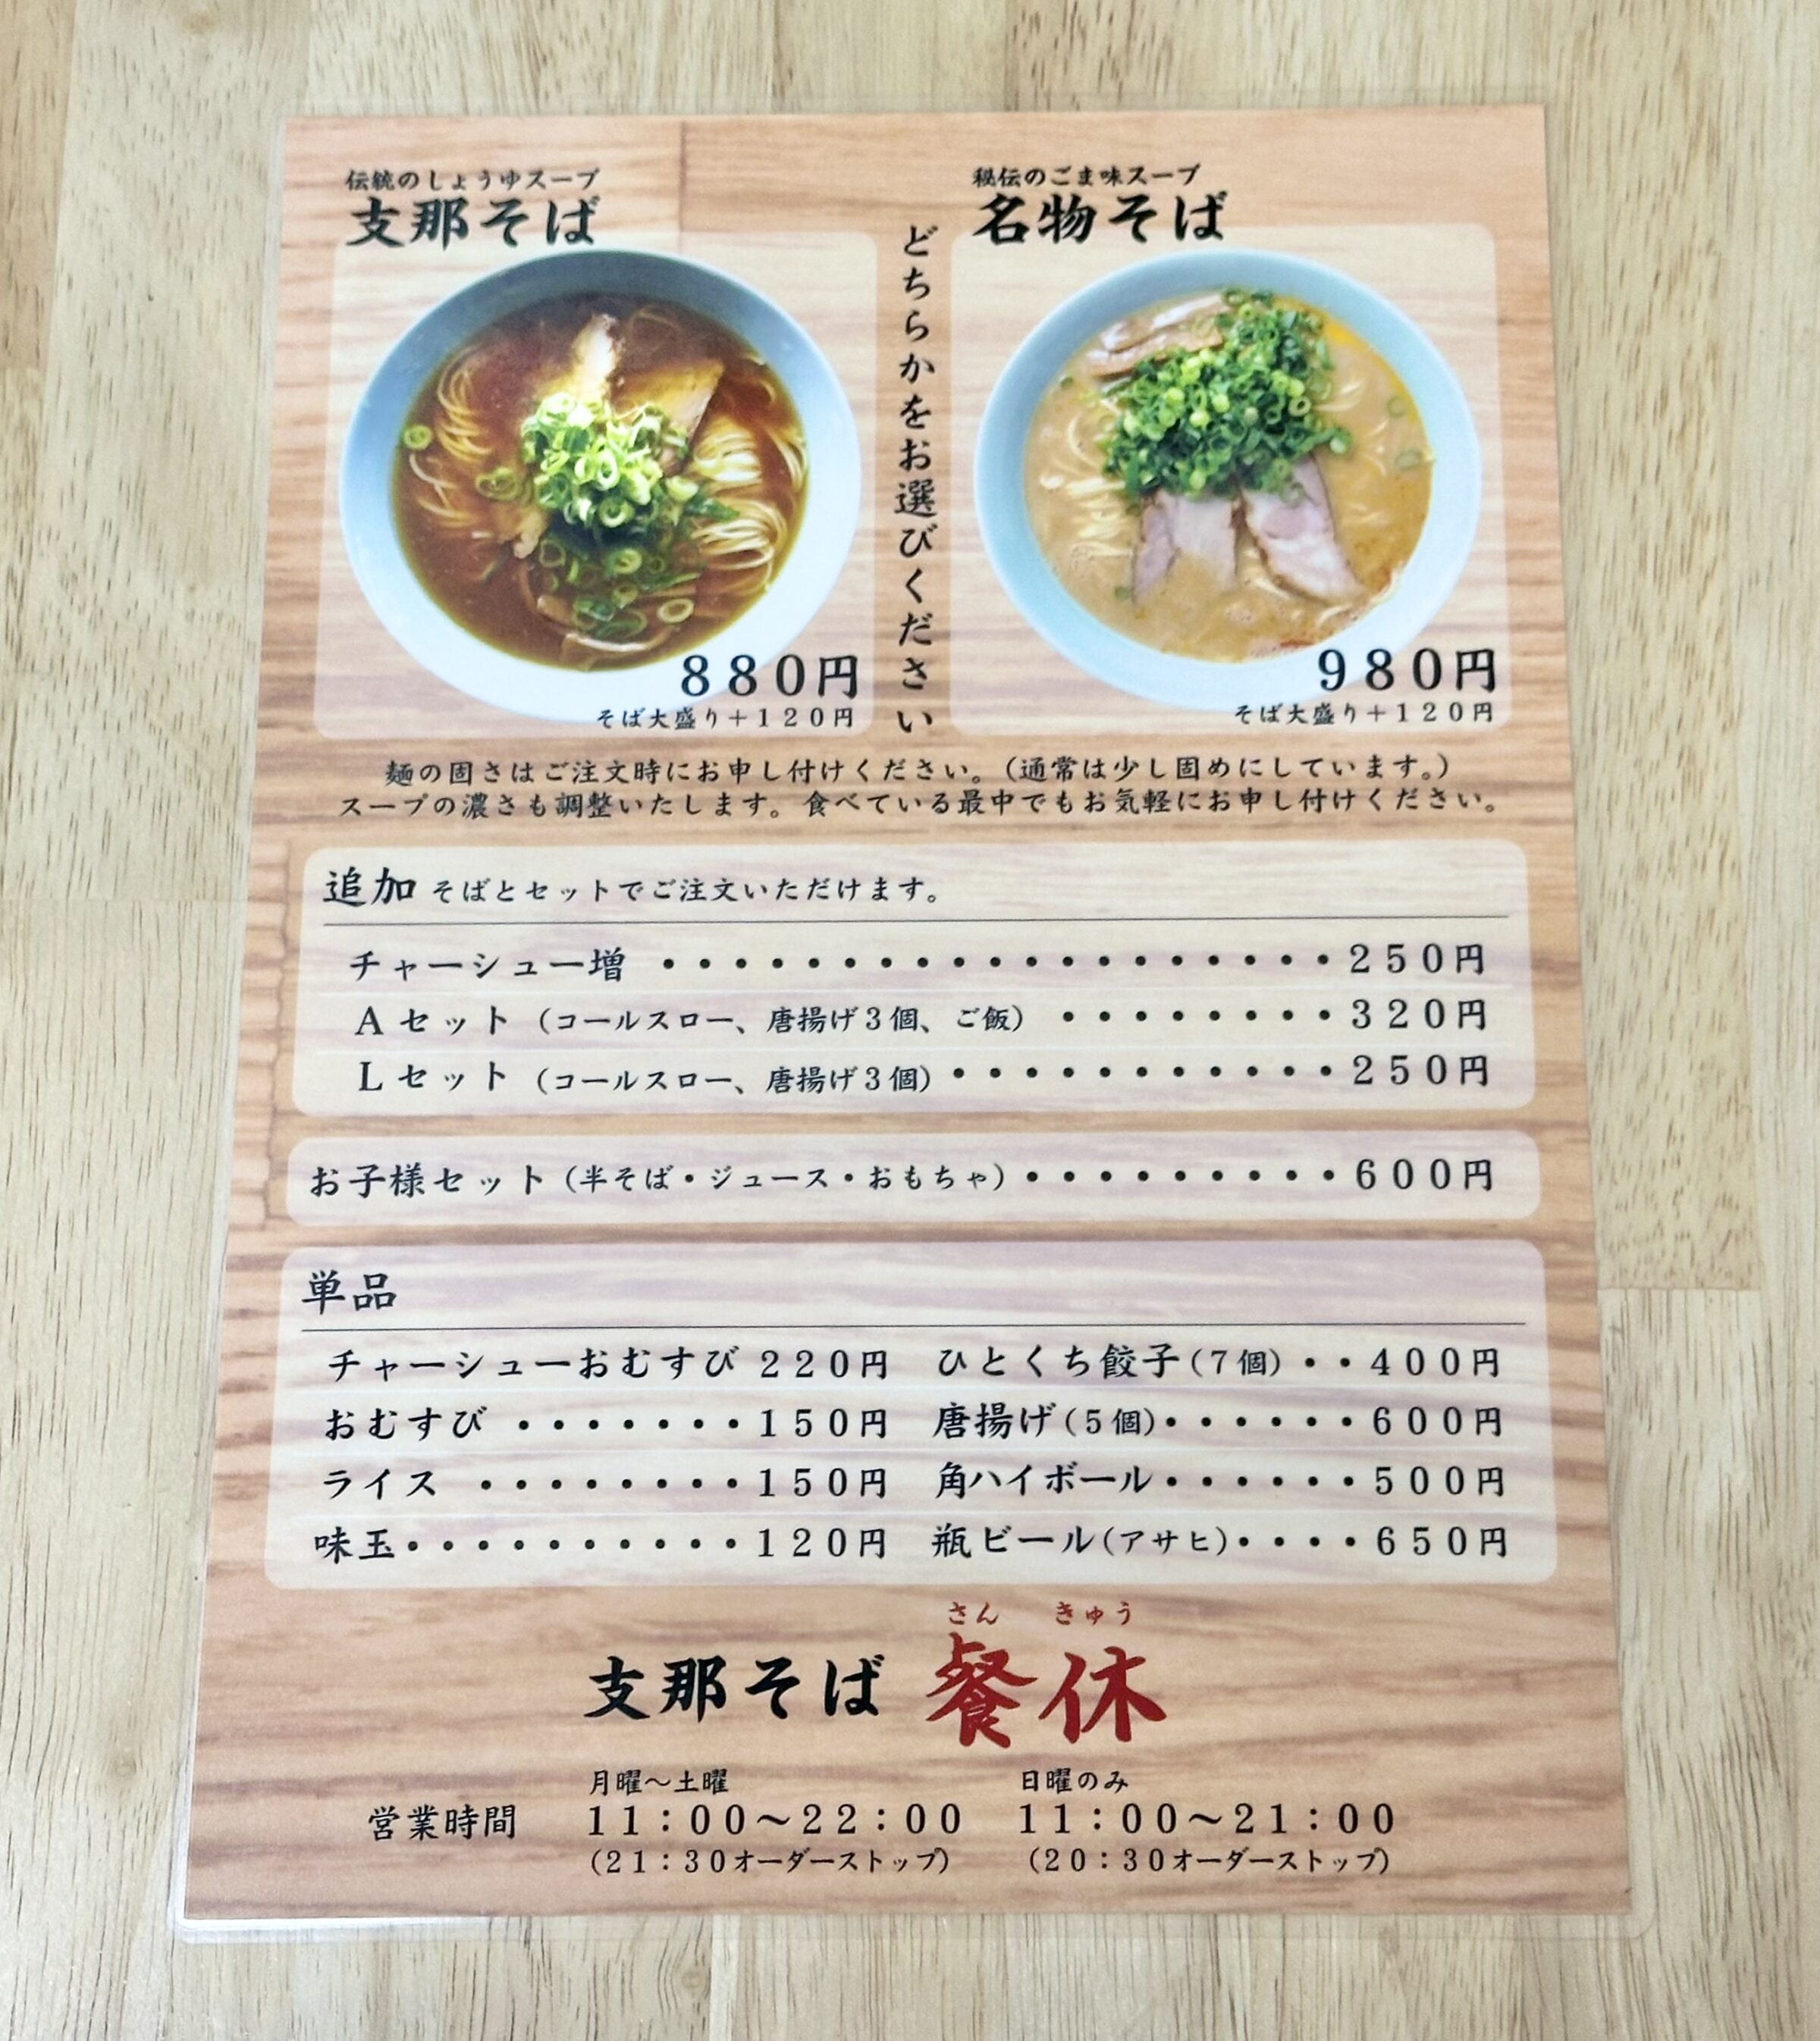 伝統のしょうゆスープ
支那そば
880円
そば大盛り＋120円
どちらかをお選びください
秘伝のごま味スープ
名物そば
980円
そば大盛り＋120円
麺の固さはご注文時にお申し付けください。（通常は少し固めにしています。）
スープの濃さも調整いたします。食べている最中でもお気軽にお申し付けください。
追加 そばとセットでご注文いただけます。
チャーシュー増 ・・・・・・・・・・・・・・・・・・・250円
Aセット（コールスロー、唐揚げ3個、ご飯）・・・・・・・・320円
Lセット（コールスロー、唐揚げ3個）・・・・・・・・・・・250円
お子様セット（半そば・ジュース・おもちゃ）・・・・・・・・・600円
単品
チャーシューおむすび 220円
おむすび ・・・・・・・150円
ライス ・・・・・・・・150円
味玉・・・・・・・・・・120円
ひとくち餃子（7個）・・400円
唐揚げ（5個）・・・・・・600円
角ハイボール・・・・・・500円
瓶ビール（アサヒ）・・・・650円
さん きゅう
支那そば 餐休
月曜〜土曜 日曜のみ
営業時間 11：00〜22：00 11：00〜21：00
（21：30オーダーストップ） （20：30オーダーストップ）